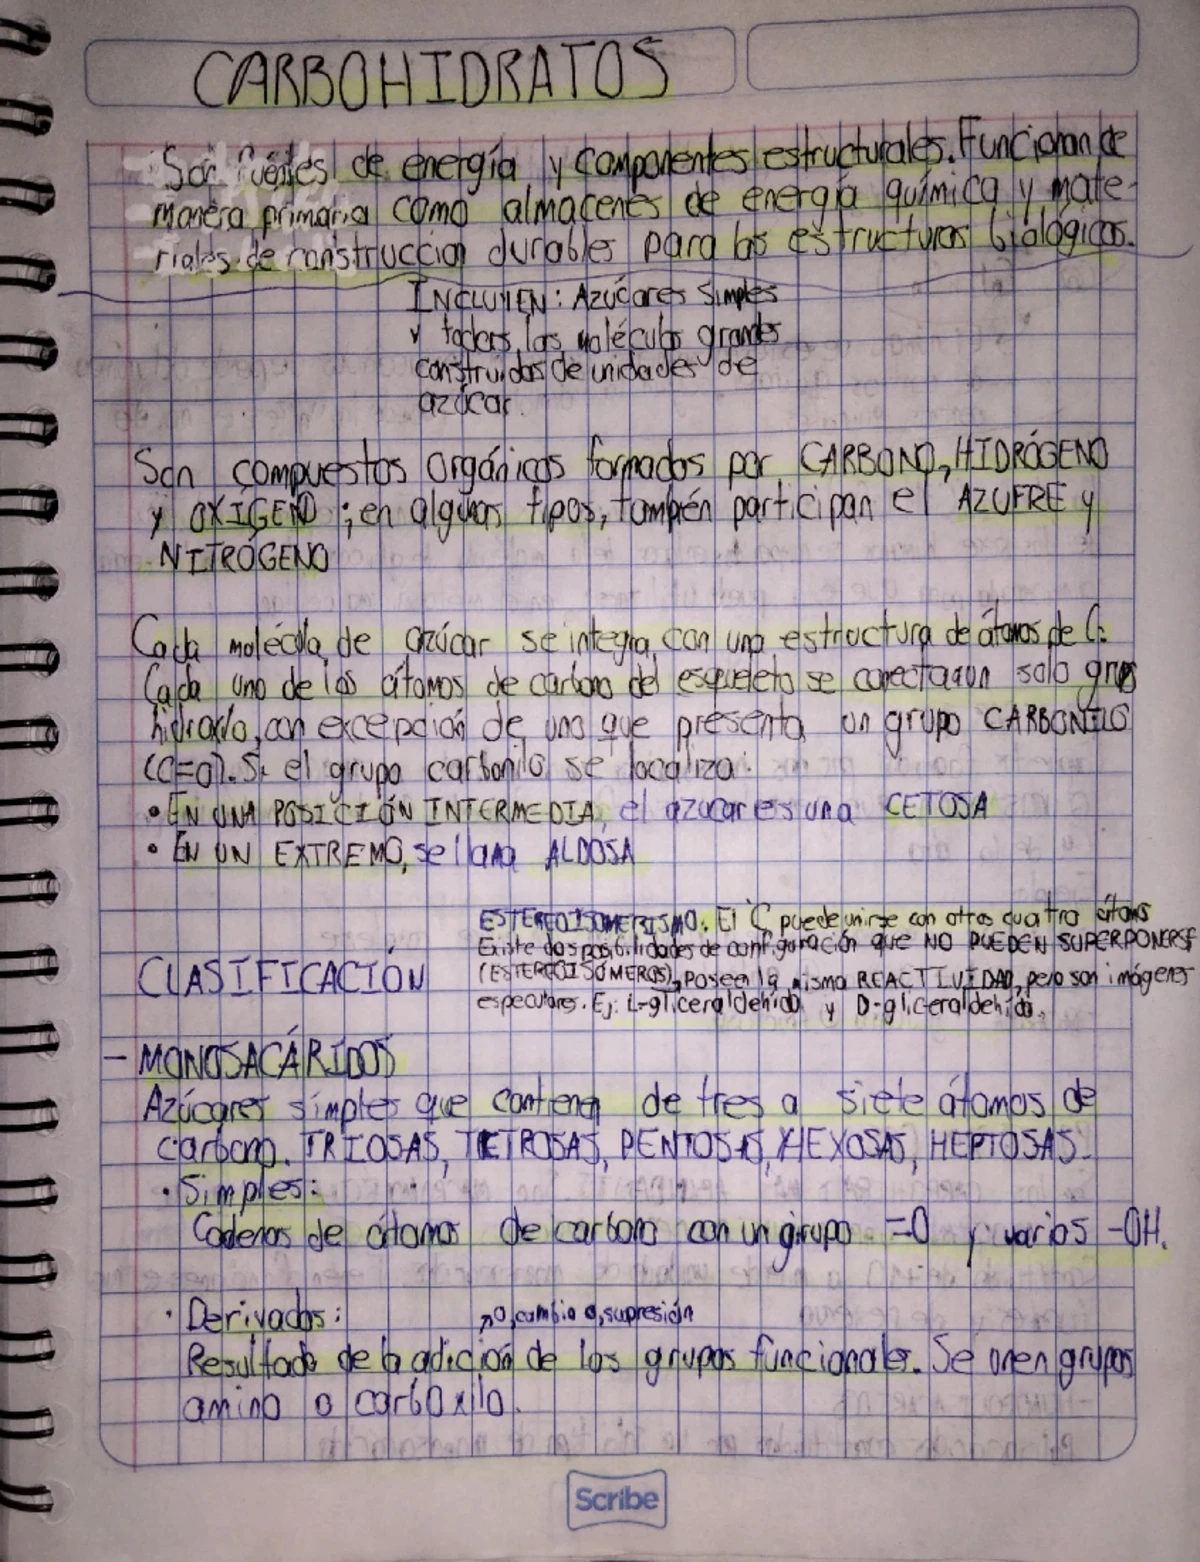 CARBOHIDRATOS
Son fuentes de energía y componentes estructurales. Funcionan de
manera primaria como almacenes de energía química y mate-
riales de construccion durables para las estructuras biológicas.
INCLUYEN: Azúcares simples
y todas las moléculas grandes
construidas de unidades de
azúcar.
Son compuestos orgánicos formados por CARBONO, HIDRÓGENO
y OXÍGENO ; en algunos tipos, también participan el AZUFRE y
NITRÓGENO
Cada molécula de azúcar se integra con una estructura de átomos de C.
Cada uno de los átomos de carbono del esqueleto se conecta a un solo grupo
hidroxilo, con excepción de uno que presenta un grupo CARBONILO
(C=O). Si el grupo carbonilo se localiza:
• EN UNA POSICIÓN INTERMEDIA, el azucar es una CETOSA
• EN UN EXTREMO, se llama ALDOSA
ESTEREOISOMERISMO. El C puede unirse con otros cuatro átomos
Existe dos posibilidades de configuración que NO PUEDEN SUPERPONERSE
(ESTEREOISÓMEROS), poseen la misma REACTIVIDAD, pero son imágenes
especulares. Ej: L-gliceraldehído y D-gliceraldehído.
CLASIFICACIÓN
- MONOSACÁRIDOS
Azúcares simples que contienen de tres a siete átomos de
carbono. TRIOSAS, TETROSAS, PENTOSAS, HEXOSAS, HEPTOSAS.
• Simples:
Cadenas de átomos de carbono con un grupo =O y varios -OH.
• Derivados:
o, cambio o, supresión
Resultado de la adición de los grupos funcionales. Se unen grupos
amino o carboxilo.
Scribe